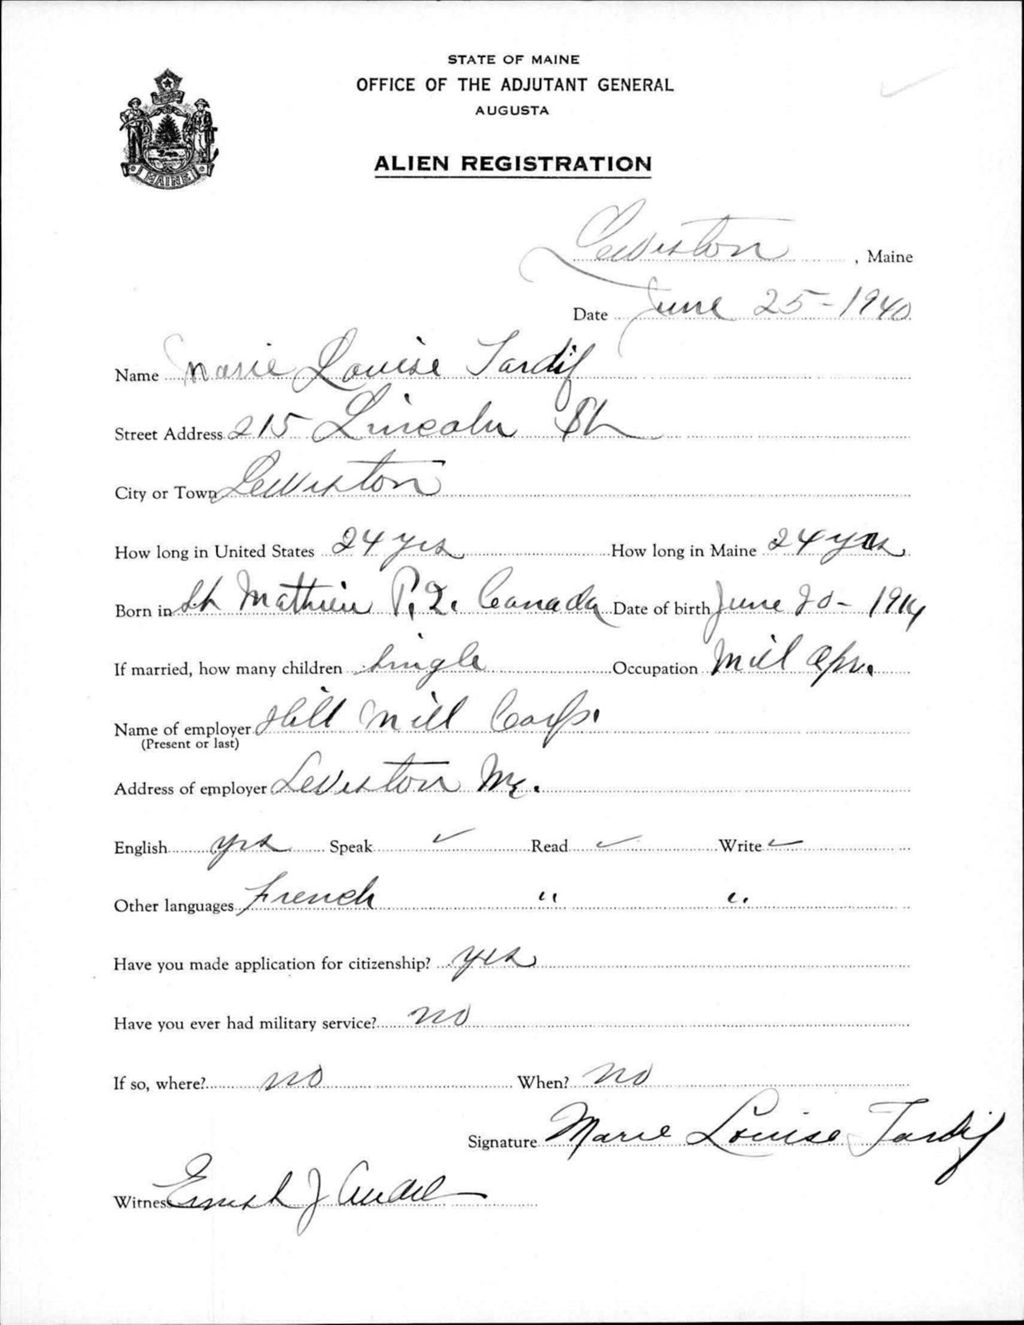 STATE OF MAINE
OFFICE OF THE ADJUTANT GENERAL
AUGUSTA
MAINE
ALIEN REGISTRATION
Lewiston, Maine
Date June 25-1940
Name Marie Louise Tardif
Street Address 215 Lincoln St
City or Town Lewiston
How long in United States 24 yrs How long in Maine 24 yrs
Born in St Mathieu P.Q. Canada Date of birth June 20-1914
If married, how many children Single Occupation Mill Opr.
Name of employer Hill Mill Corp.
(Present or last)
Address of employer Lewiston Me.
English yes Speak ✓ Read ✓ Write ✓
Other languages French " "
Have you made application for citizenship? yes
Have you ever had military service? no
If so, where? no When? no
Signature Marie Louise Tardif
Witness J